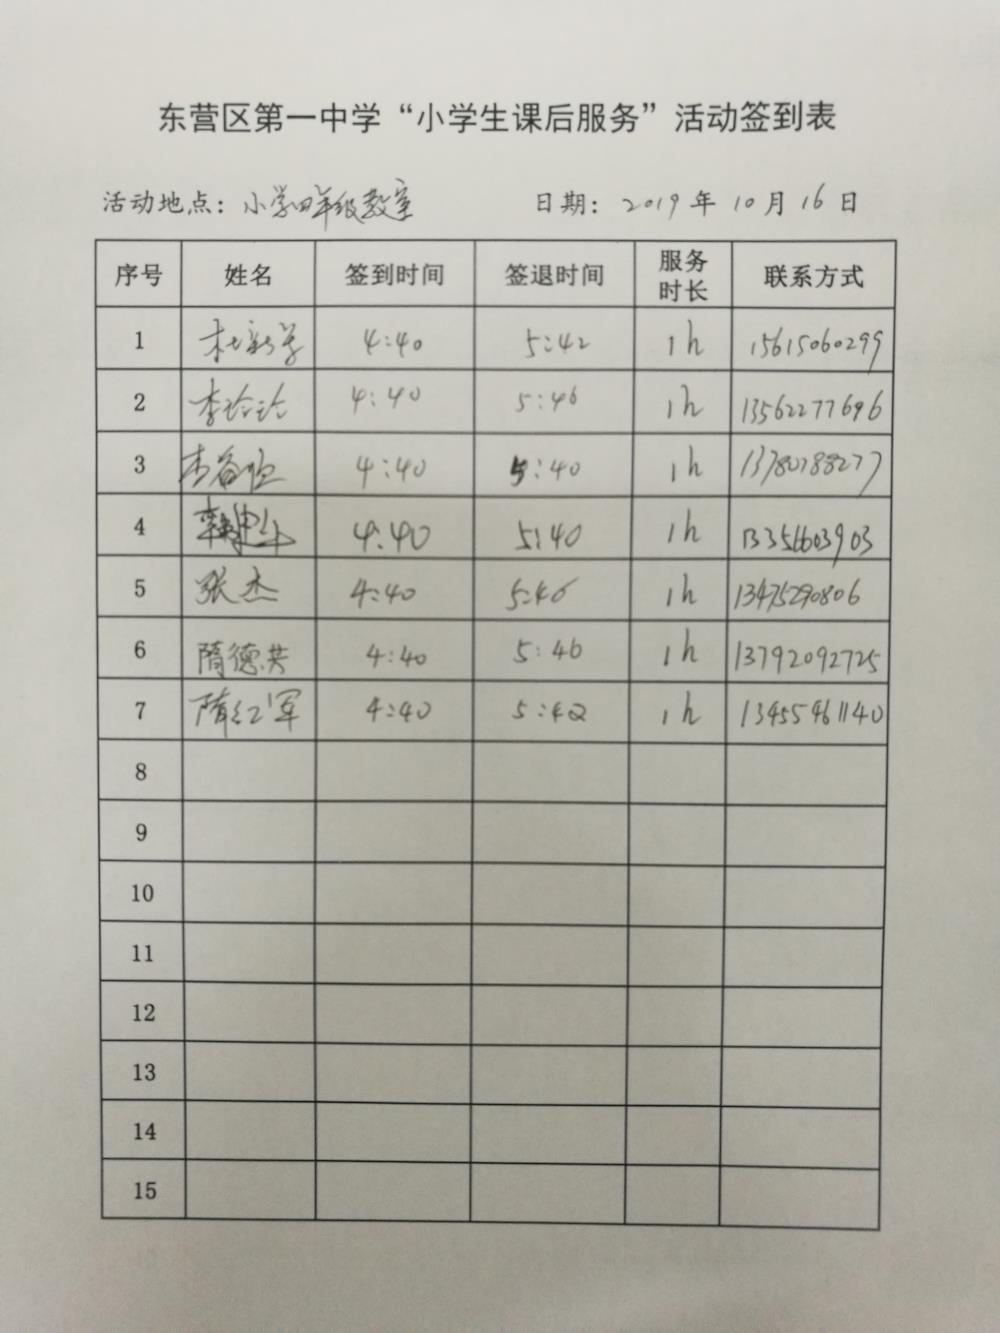 东营区第一中学“小学生课后服务”活动签到表
活动地点：小学四年级教室 日期：2019年10月16日
序号 姓名 签到时间 签退时间 服务时长 联系方式
1 杜新学 4:40 5:42 1h 15615060299
2 李玲玲 4:40 5:46 1h 13562277696
3 4:40 5:40 1h 13780788277
4 4:40 5:40 1h 13356603903
5 张杰 4:40 5:46 1h 13475290806
6 隋德芳 4:40 5:46 1h 13792092725
7 隋红军 4:40 5:42 1h 13455461140
8
9
10
11
12
13
14
15